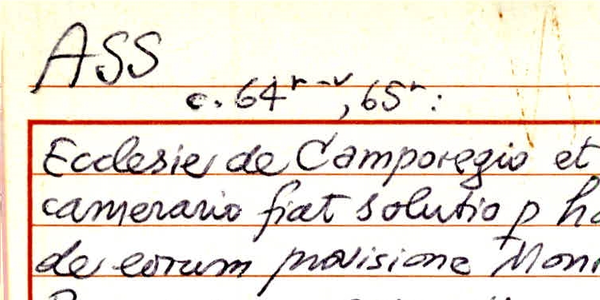 ASS
c. 64r-v, 65r:
Ecclesie de Camporegio et
camerario fiat solutio p
de eorum provisione